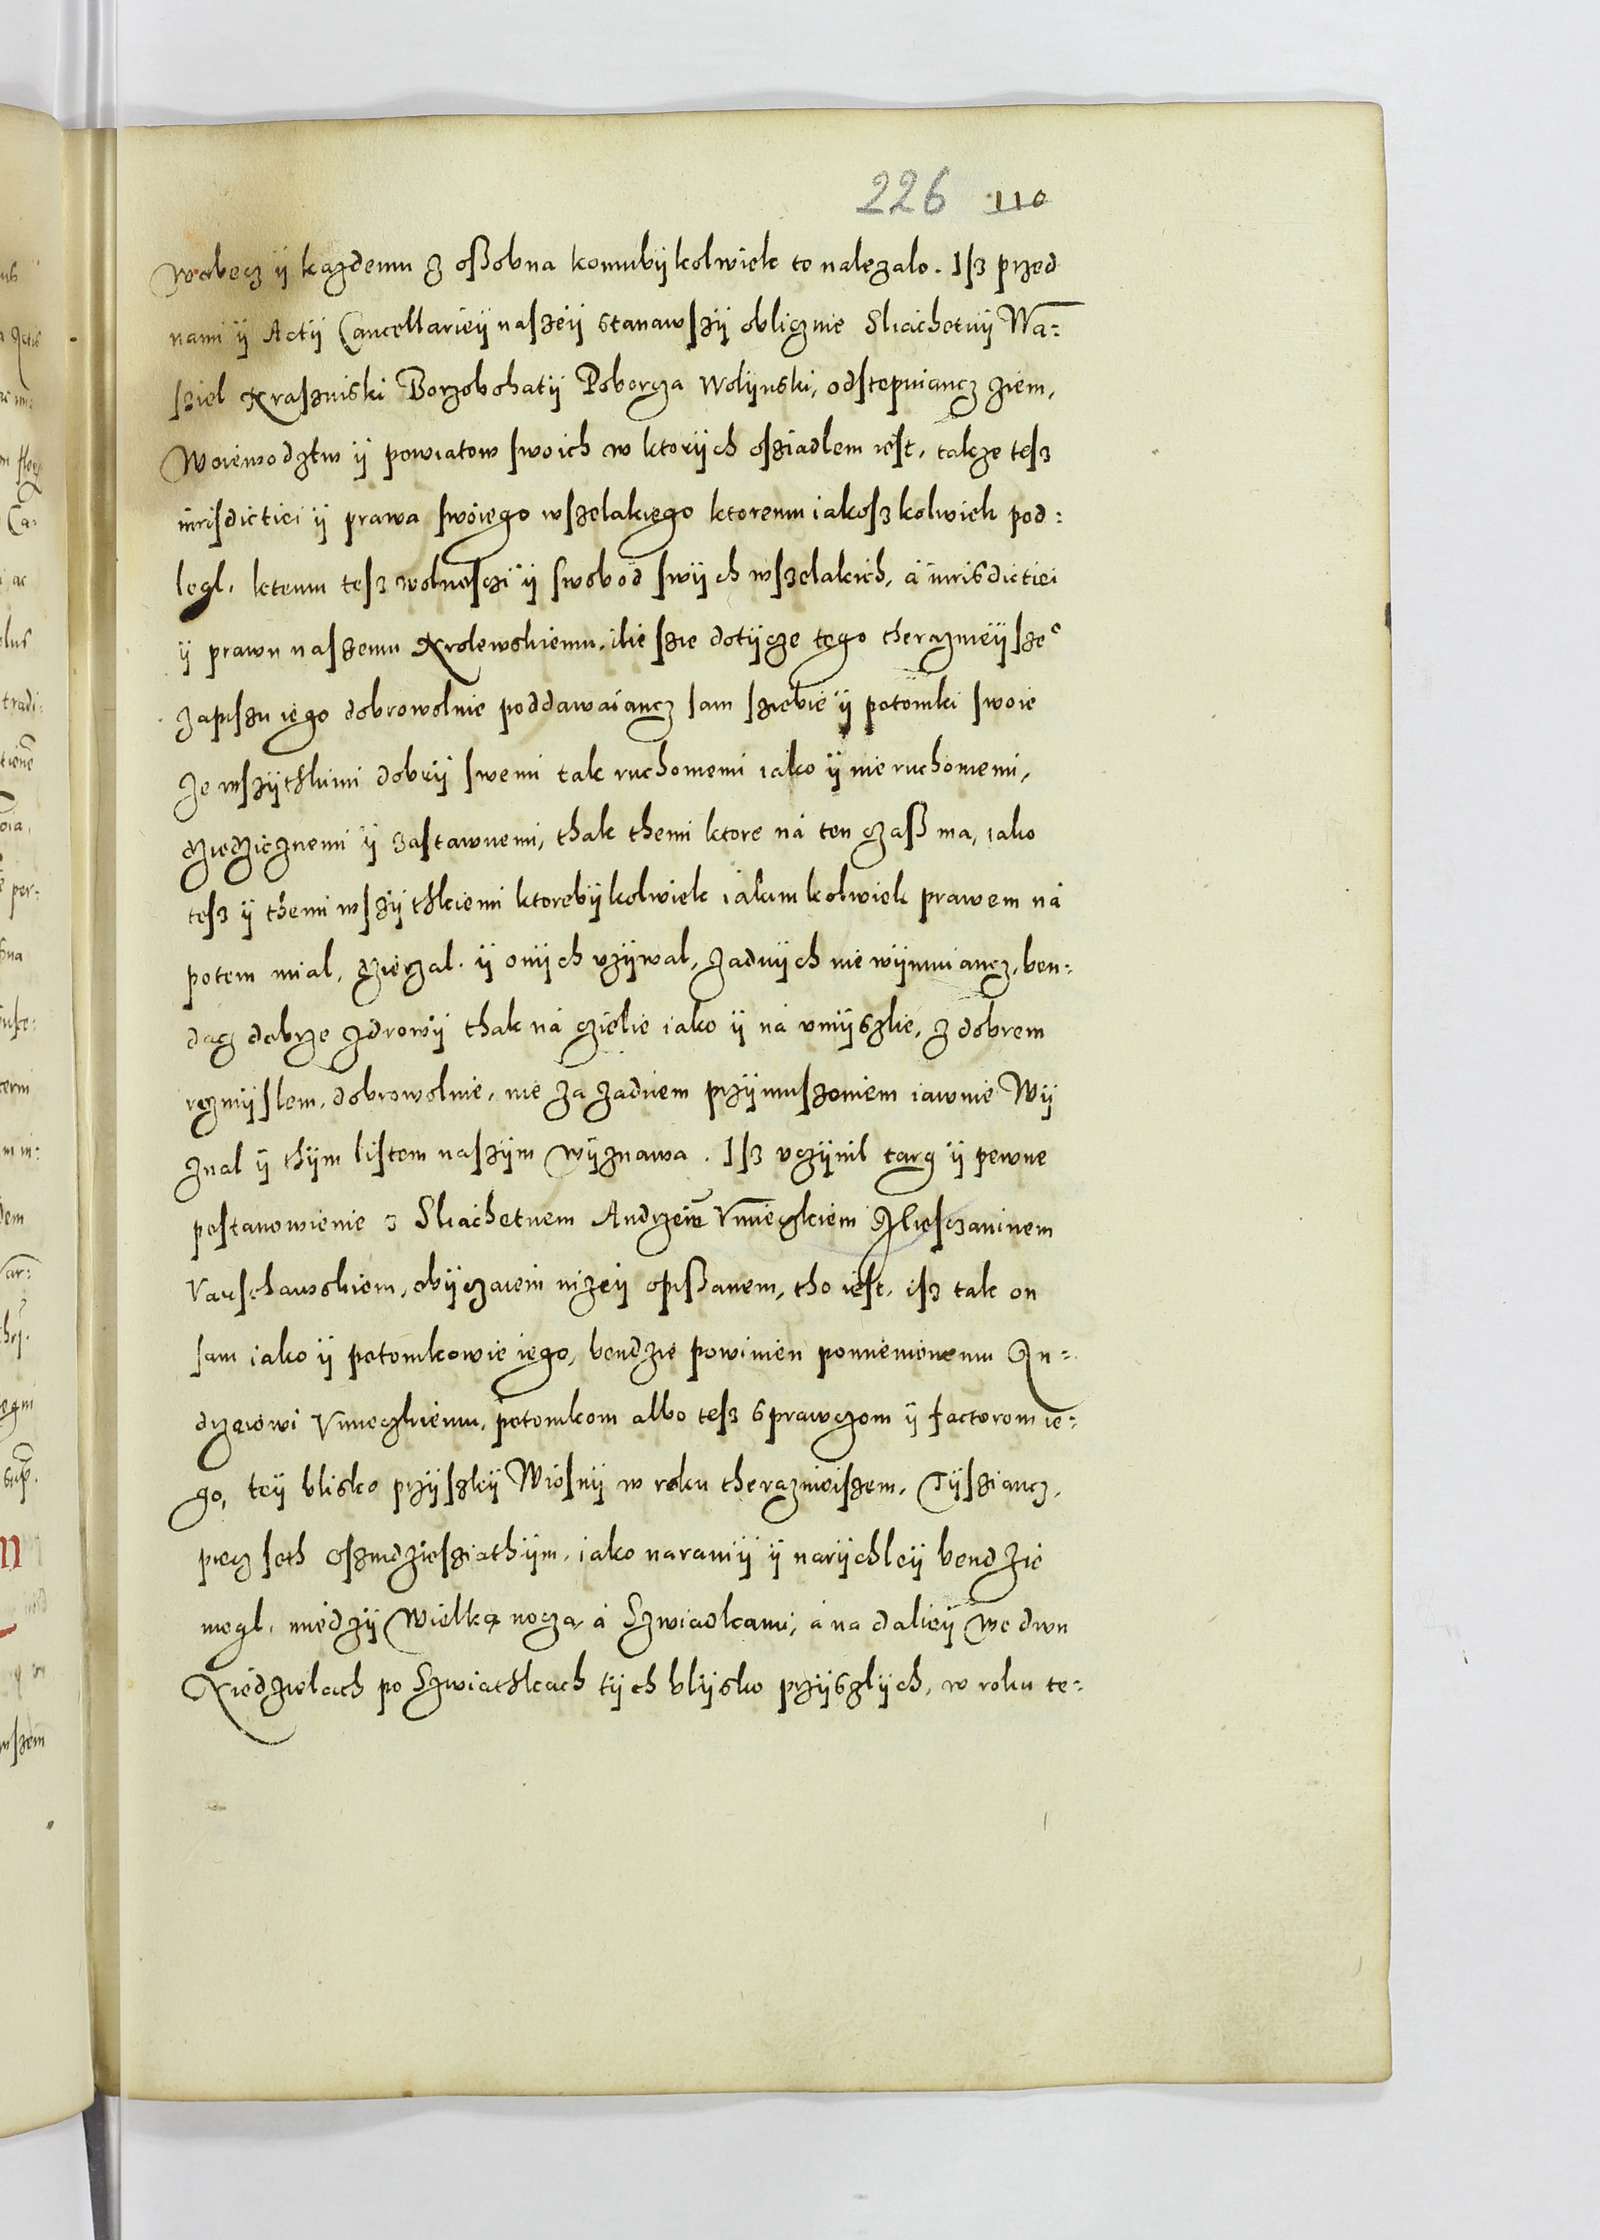 226 110
wobecz ÿ każdemu z oßobna komubÿ kolwiek to nalezalo. Isz przed
nami ÿ Actÿ Cancellarieÿ naszeÿ stanawszÿ oblicznie Sliachetnÿ Wa=
sziel Kraszniski Borzobohatÿ Poborcza Wolÿnski, odstepuiancz ziem,
Woiewodztw ÿ powiatow swoich w ktorÿch osziadlem iest, takze tesz
iurisdictiei ÿ prawa swoiego wszelakiego ktoremu iakosz kolwiek pod=
legl. ktemu tesz wolnosczi ÿ swobod swÿch wszelakich, á iurisdictiei
ÿ prawu naszemu Krolewskiemu, ilie szie dotÿcze tego therazneÿsze°
zapiszu iego dobrowolnie poddawaiancz sam sziebie ÿ potomki swoie
ze wszÿthkimi dobrÿ swemi tak ruchomemi iako ÿ nie ruchomemi,
dziedzicznemi ÿ zastawnemi, thak themi ktore ná ten czaß ma, iako
tesz ÿ themi wszÿthkiemi ktorebÿ kolwiek iakim kolwiek prawem ná
potem mial, dzierzal. ÿ onÿch uzÿwal, zadnÿch nie wÿmuiancz, ben=
dacz dobrze zdrowÿ thak ná czielie iako ÿ ná umÿszlie, z dobrem
rozmÿslem, dobrowolnie, nie za zadnem przÿmuszeniem iawnie Wÿ
znal ÿ thÿm listem naszÿm wÿznawa. Isz vczÿnil targ ÿ pewne
postanowienie z Sliachetnem Andrzeiem Vmieczkiem Mieszczaninem
Varschawskiem, obÿczaiem nizeÿ opißanem, tho iest, isz tak on
sam iako ÿ potomkowie iego, bendzie powinien pomienionemu An=
drzeiowi Vmieczkiemu, potomkom albo tesz sprawczom ÿ factorom ie=
go, teÿ blisko przÿszleÿ Wiosnÿ w roku theraznieiszem, Tÿsziancz,
piecz seth Oszmdziesziathÿm, iako naraniÿ ÿ narÿchleÿ bendzie
mogl, miedzÿ Wielką noczą á Szwiadkami, á na dalieÿ we dwu
Niedzielach po Szwiathkach tÿch blÿsko przÿszlÿch, w roku te=